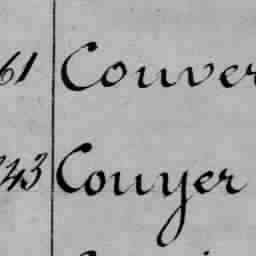 61 Couver
243 Couyer